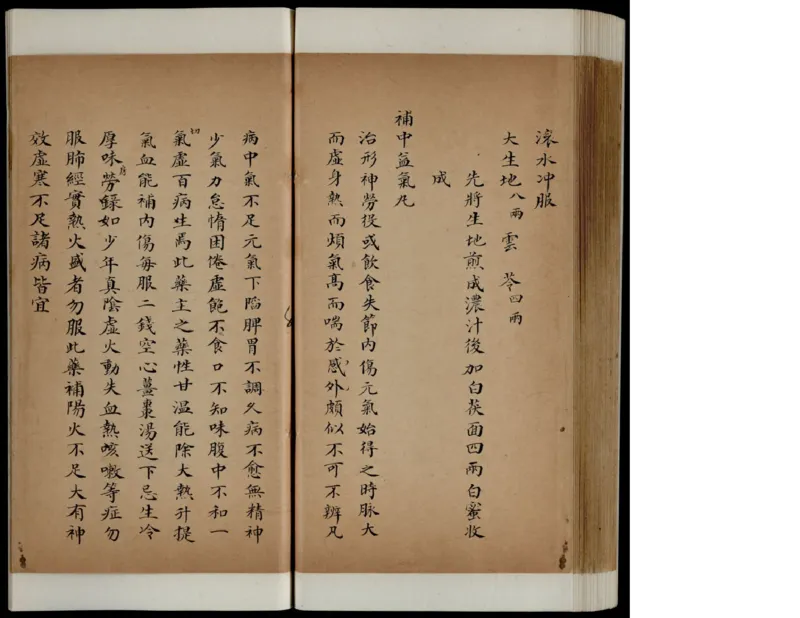 滚水冲服
大生地八両 雲 苓四両
先將生地煎成濃汁後加白茯面四両白蜜收
成
補中益氣尤
治形神勞役或飲食失節內傷元氣始得之時脉大
而虛身熱而煩氣髙而喘於感外頗似不可不辨凡
病中氣不足元氣下陷脾胃不調久病不愈無精神
少氣力怠惰困倦虛飽不食口不知味腹中不和一
切
氣虛百病生焉此藥主之藥性甘溫能除大熱升提
氣血能補內傷每服二錢空心薑棗湯送下忌生冷
厚味房勞錄如少年真陰虛火動失血熱咳嗽等症勿
服肺經實熱火盛者勿服此藥補陽火不足大有神
效虛寒不足諸病皆宜